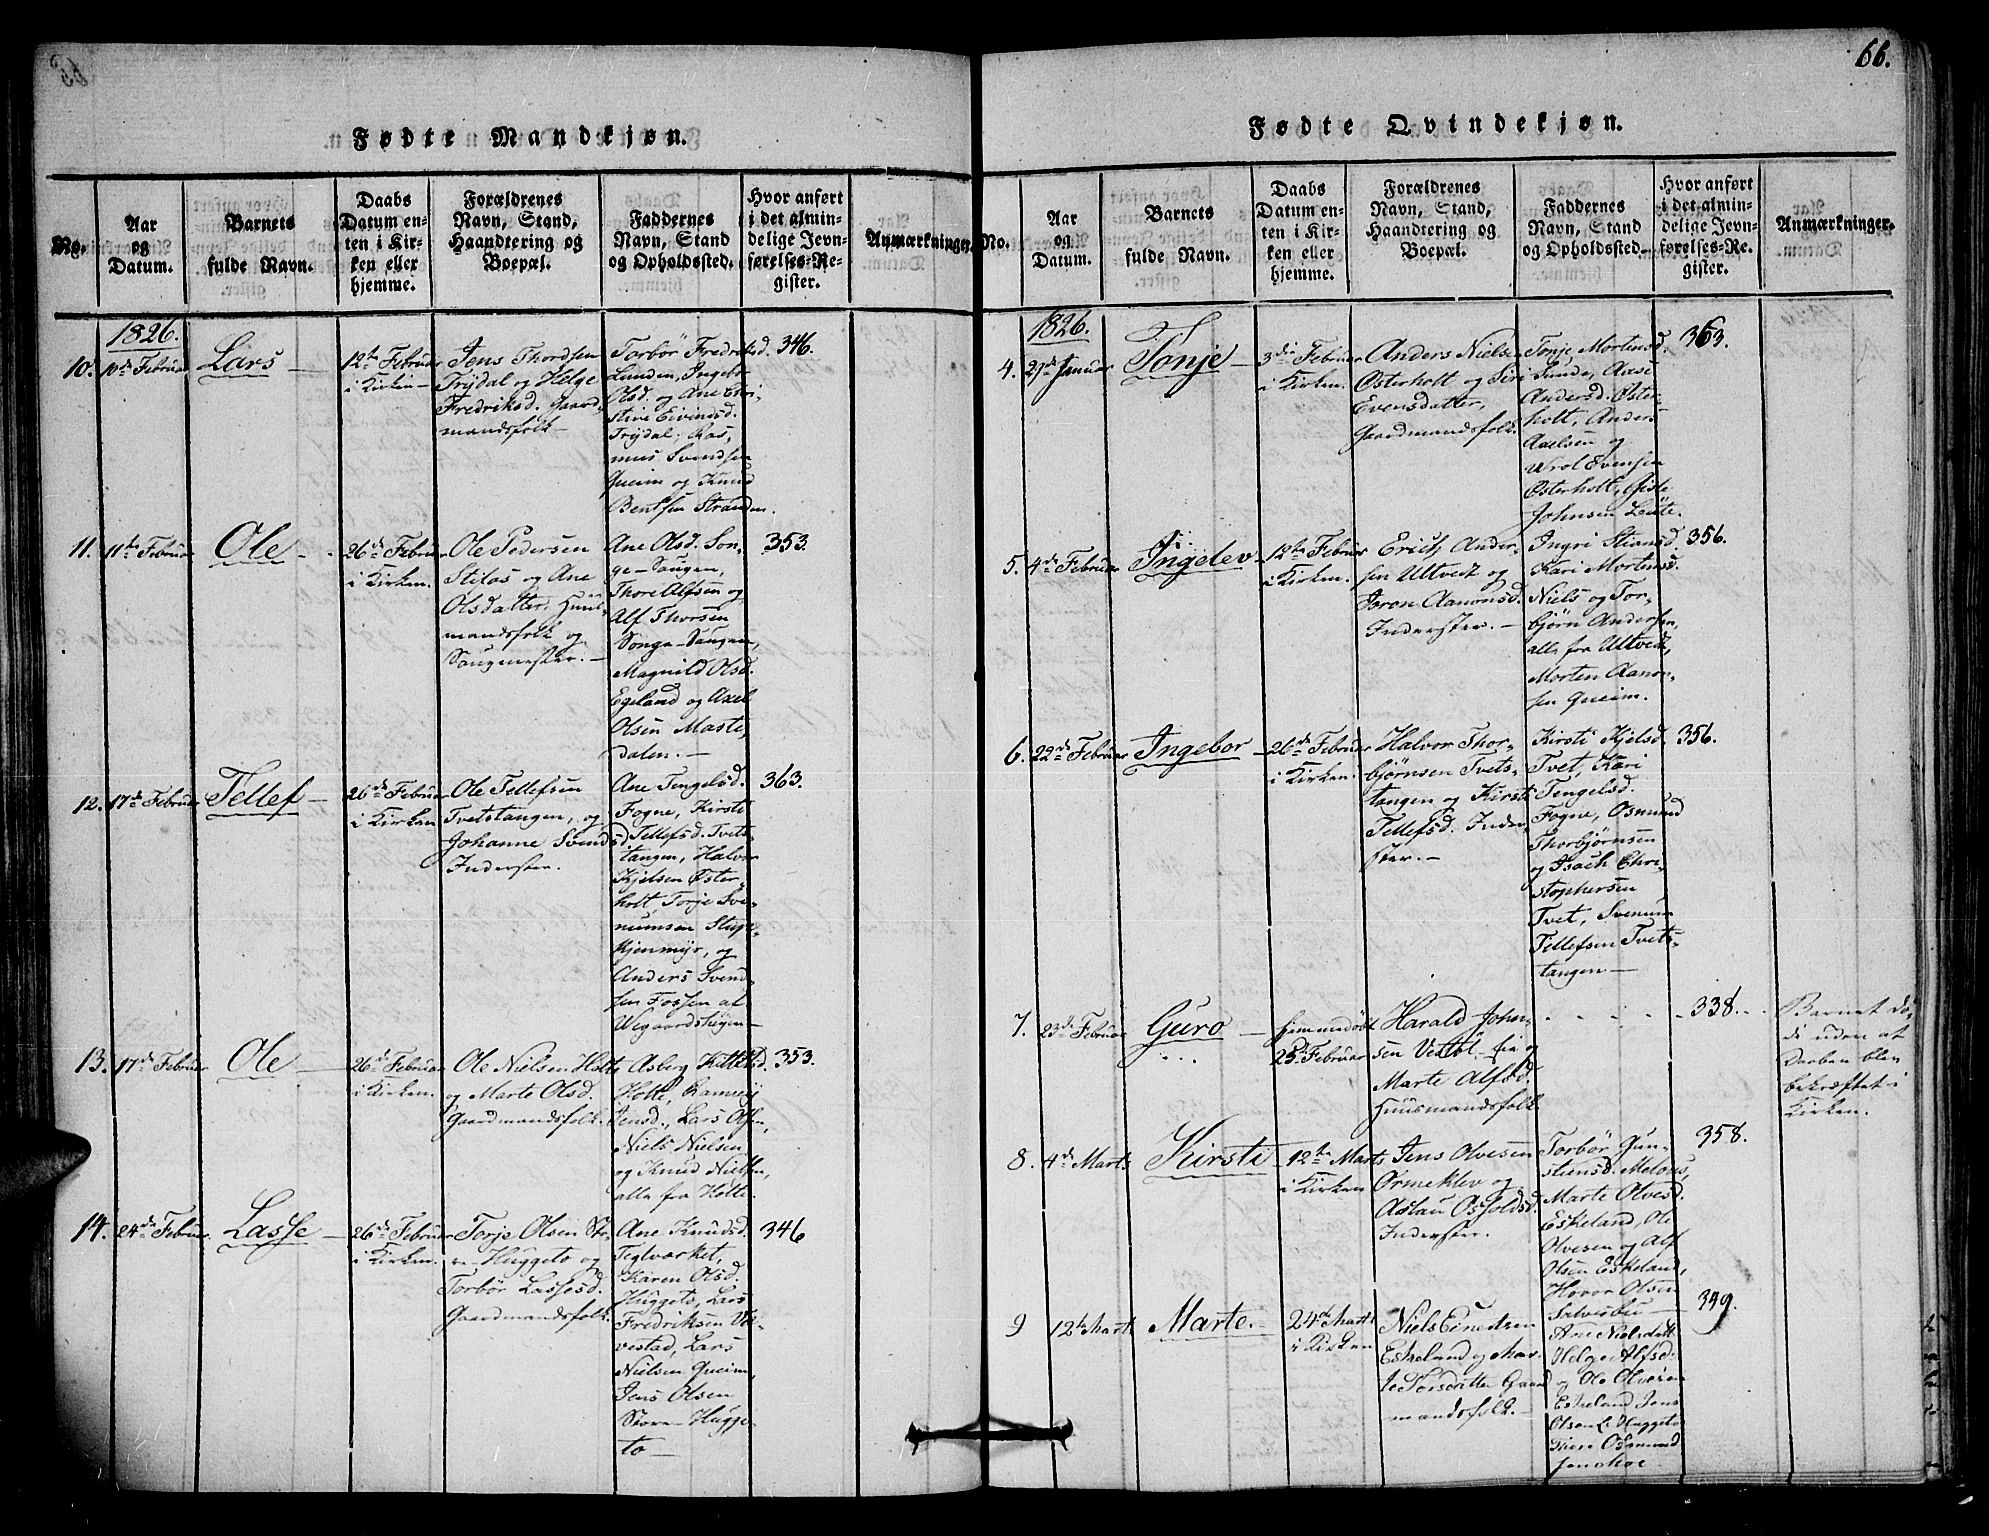 66.
Fødte Mandkjøn.
No.
Aar
og
Datum.
Barnets
fulde Navn.
Daabs
Datum en-
ten i Kir-
ken eller
hjemme.
Forældrenes
Navn, Stand,
Haandtering og
Boepæl.
Faddernes
Navn, Stand
og Opholdssted.
Hvor anført
i det almin-
delige Jevn-
førelses-Re-
gister.
Anmærkninger.
1826.
10.
10de Februar
Lars
12te Februar
i Kirken
Jens Thordsen
Trydal og Helge
Fredriksd. Gaard-
mandsfolk
Torbør Fredriksd.
Lunden, Ingebr
Olsd. og Ane Chri-
stine Eivindsd.
Trydal, Ras,
mus Svendsen
Queim og Knud
Bentsen Stranden.
346.
11.
11te Februar
Ole
26de Februar
i Kirken.
Ole Pedersen
Stifos og Ane
Olsdatter, Huus-
mandsfolk og
Saugmester.
Ane Olsd. Son-
ge-Saugen,
Thore Alfsen og
Alf Thorsen
Songe-Saugen,
Magnild Olsd.
Egeland og Axel
Olsen Maste,
dalen.
353.
12.
17de Februar
Tellef
26de Februar
i Kirken
Ole Tellefsen
Tvetstangen, og
Johanne Svendsd.
Inderster.
Ane Tengelsd.
Fogne, Kirsti
Tellefsd. Tvets-
tangen, Halvor
Kjelsen Øster-
holt Torje Sve-
numsen Stupe-
kjenmyr, og
Anders Svend-
sen Fossen at
Wegaardsheien
363.
13.
17de Februar
Ole
26de Februar
i Kirken.
Ole Nielsen Holte
og Marte Olsd.
Gaardmandsfolk.
Asberg Kittelsd.
Holte, Ramveij
Jensd., Lars Olsen,
Niels Nielsen
og Knud Nielsen,
alle fra Holte.
353.
14.
24de Februar
Lasse
26de Februar
i Kirken.
Torje Olsen Sto-
re-Huggeto og
Torbør Lassesd.
Gaardmandsfolk.
Ane Knudsd.
Teglværket,
Karen Olsd.
Huggeto, Lars
Fredriksen Ve-
vestad, Lars
Nielsen Queim,
Jens Olsen
Store-Hugge-
to
346
Fødte Qvindekjøn.
No.
Aar
og
Datum.
Barnets
fulde Navn.
Daabs
Datum en-
ten i Kir-
ken eller
hjemme.
Forældrenes
Navn, Stand,
Haandtering og
Boepæl.
Faddernes
Navn, Stand
og Opholdssted.
Hvor anført
i det almin-
delige Jevn-
førelses-Re-
gister.
Anmærkninger.
1826.
4.
27de Januar
Tonje
3die Februar
i Kirken.
Anders Nielsen
Østerholt og Siri
Evensdatter,
Gaardmandsfolk.
Tonje Mortensd.
Sunde, Aase
Andersd. Øster-
holt, Anders
Axelsen og
Wrol Evensen
Østerholt, Gisle
Johnsen Leite.
363.
5.
4de Februar
Ingelev
12te Februar
i Kirken.
Erich Ander-
sen Ultvedt og
Joron Aanonsd.
Inderster.
Ingri Stiansd.
Kari Mortensd.
Niels og Tor-
bjørn Andersen,
alle fra Ultvedt,
Morten Aanon-
sen Queim.
356.
6.
22de Februar
Ingebor
26de Februar
i Kirken.
Halvor Thor-
bjørnsen Tvets-
tangen og Kirsti
Tellefsd. Inder-
ster.
Kirsti Kjelsd.
Tvet, Kari
Tengelsd.
Fogne, Osmund
Thorbjørnsen
og Isach Chri-
stophersen
Tvet, Svenum
Tellefsen Tvets-
tangen
356.
7.
23de Februar
Guro
Hjemmedøbt
25de Februar
Harald John-
sen Vestøl-lia og
Marte Alfsd.
Huusmandsfolk
338.
Barnet dø-
de uden at
Daaben blev
bekræftet i
Kirken.
8.
4de Marts
Kirsti
12te Marts
i Kirken
Jens Olvesen
Ormeklev og
Aslau Osfoldsd.
Inderster.
Torbør Gun-
stensd. Melaas,
Marte Olvesd.
Eskeland, Ole
Olvesen og Alf
Olsen Eskeland,
Hovor Olsen
Salvesbu
358.
9
12te Marts
Marte.
24de Marts
i Kirken
Niels Einedsen
Eskeland og Mar-
te Torsdatter Gaard
mandsfolk.
Ane Nielsdatt.
Helge Alfsd.
og Ole Olvesen
Eskeland Jens
Olsen L. Huggeto
Osmund
349.